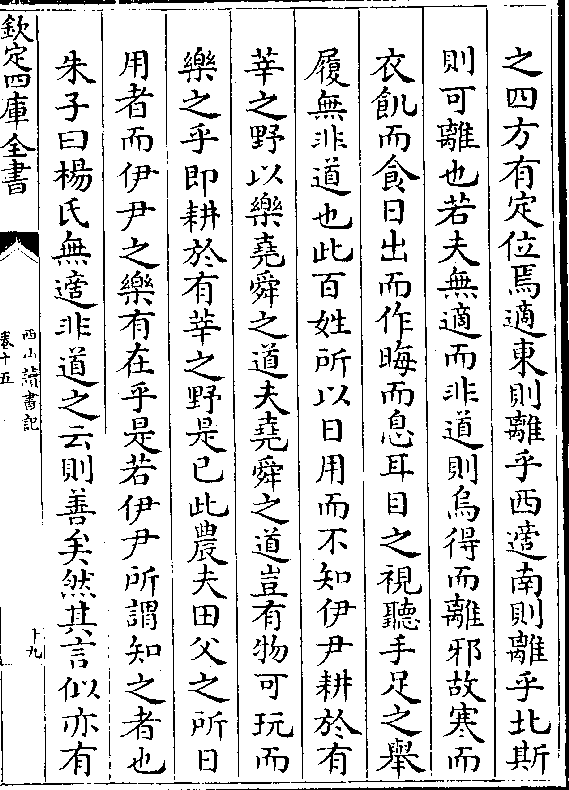 之四方有定位焉適東則離乎西適南則離乎北斯
則可離也若夫無適而非道則烏得而離邪故寒而
衣飢而食日出而作晦而息耳目之視聽手足之舉
履無非道也此百姓所以日用而不知伊尹耕於有
莘之野以樂堯舜之道夫堯舜之道豈有物可玩而
樂之乎即耕於有莘之野是已此農夫田父之所日
用者而伊尹之樂有在乎是若伊尹所謂知之者也
朱子曰楊氏無適非道之云則善矣然其言似亦有
欽定四庫全書
西山讀書記
卷十五
十九